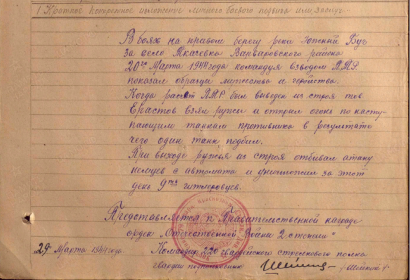 I. Краткое конкретное изложение личного боевого подвига или заслуг
В боях на правом берегу реки Южный Буг
за село Ткачевка Варваровского района
20го Марта 1944 года командуя взводом ПТР
показал образцы мужества и геройства.
Когда расчет ПТР был выведен из строя тов
Ерастов взял ружье и открыл огонь по насту-
пающим танкам противника в результате
чего один танк подбил.
При выходе ружья из строя отбивал атаку
немцев из автомата и уничтожил за этот
день 9ть гитлеровцев.
Представляется к Правительственной награде
орден "Отечественной Войны 2 степени"
29 Марта 1944 года
Командир гвардейского стрелкового полка
гвардии подполковник